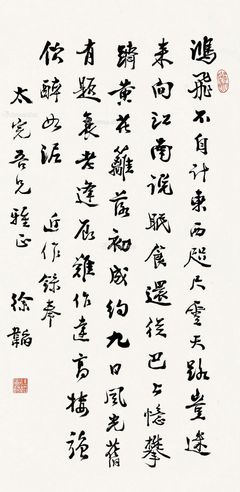 鸿飛不自計東西咫尺雲天路豈迷
来向江南説眠食還從巴上憶攀
躋黄花籬落初成約九日風光舊
有題衰老逢辰難作達高樓強
伙醉如泥 近作録奉
太完吾兄雅正 徐韜